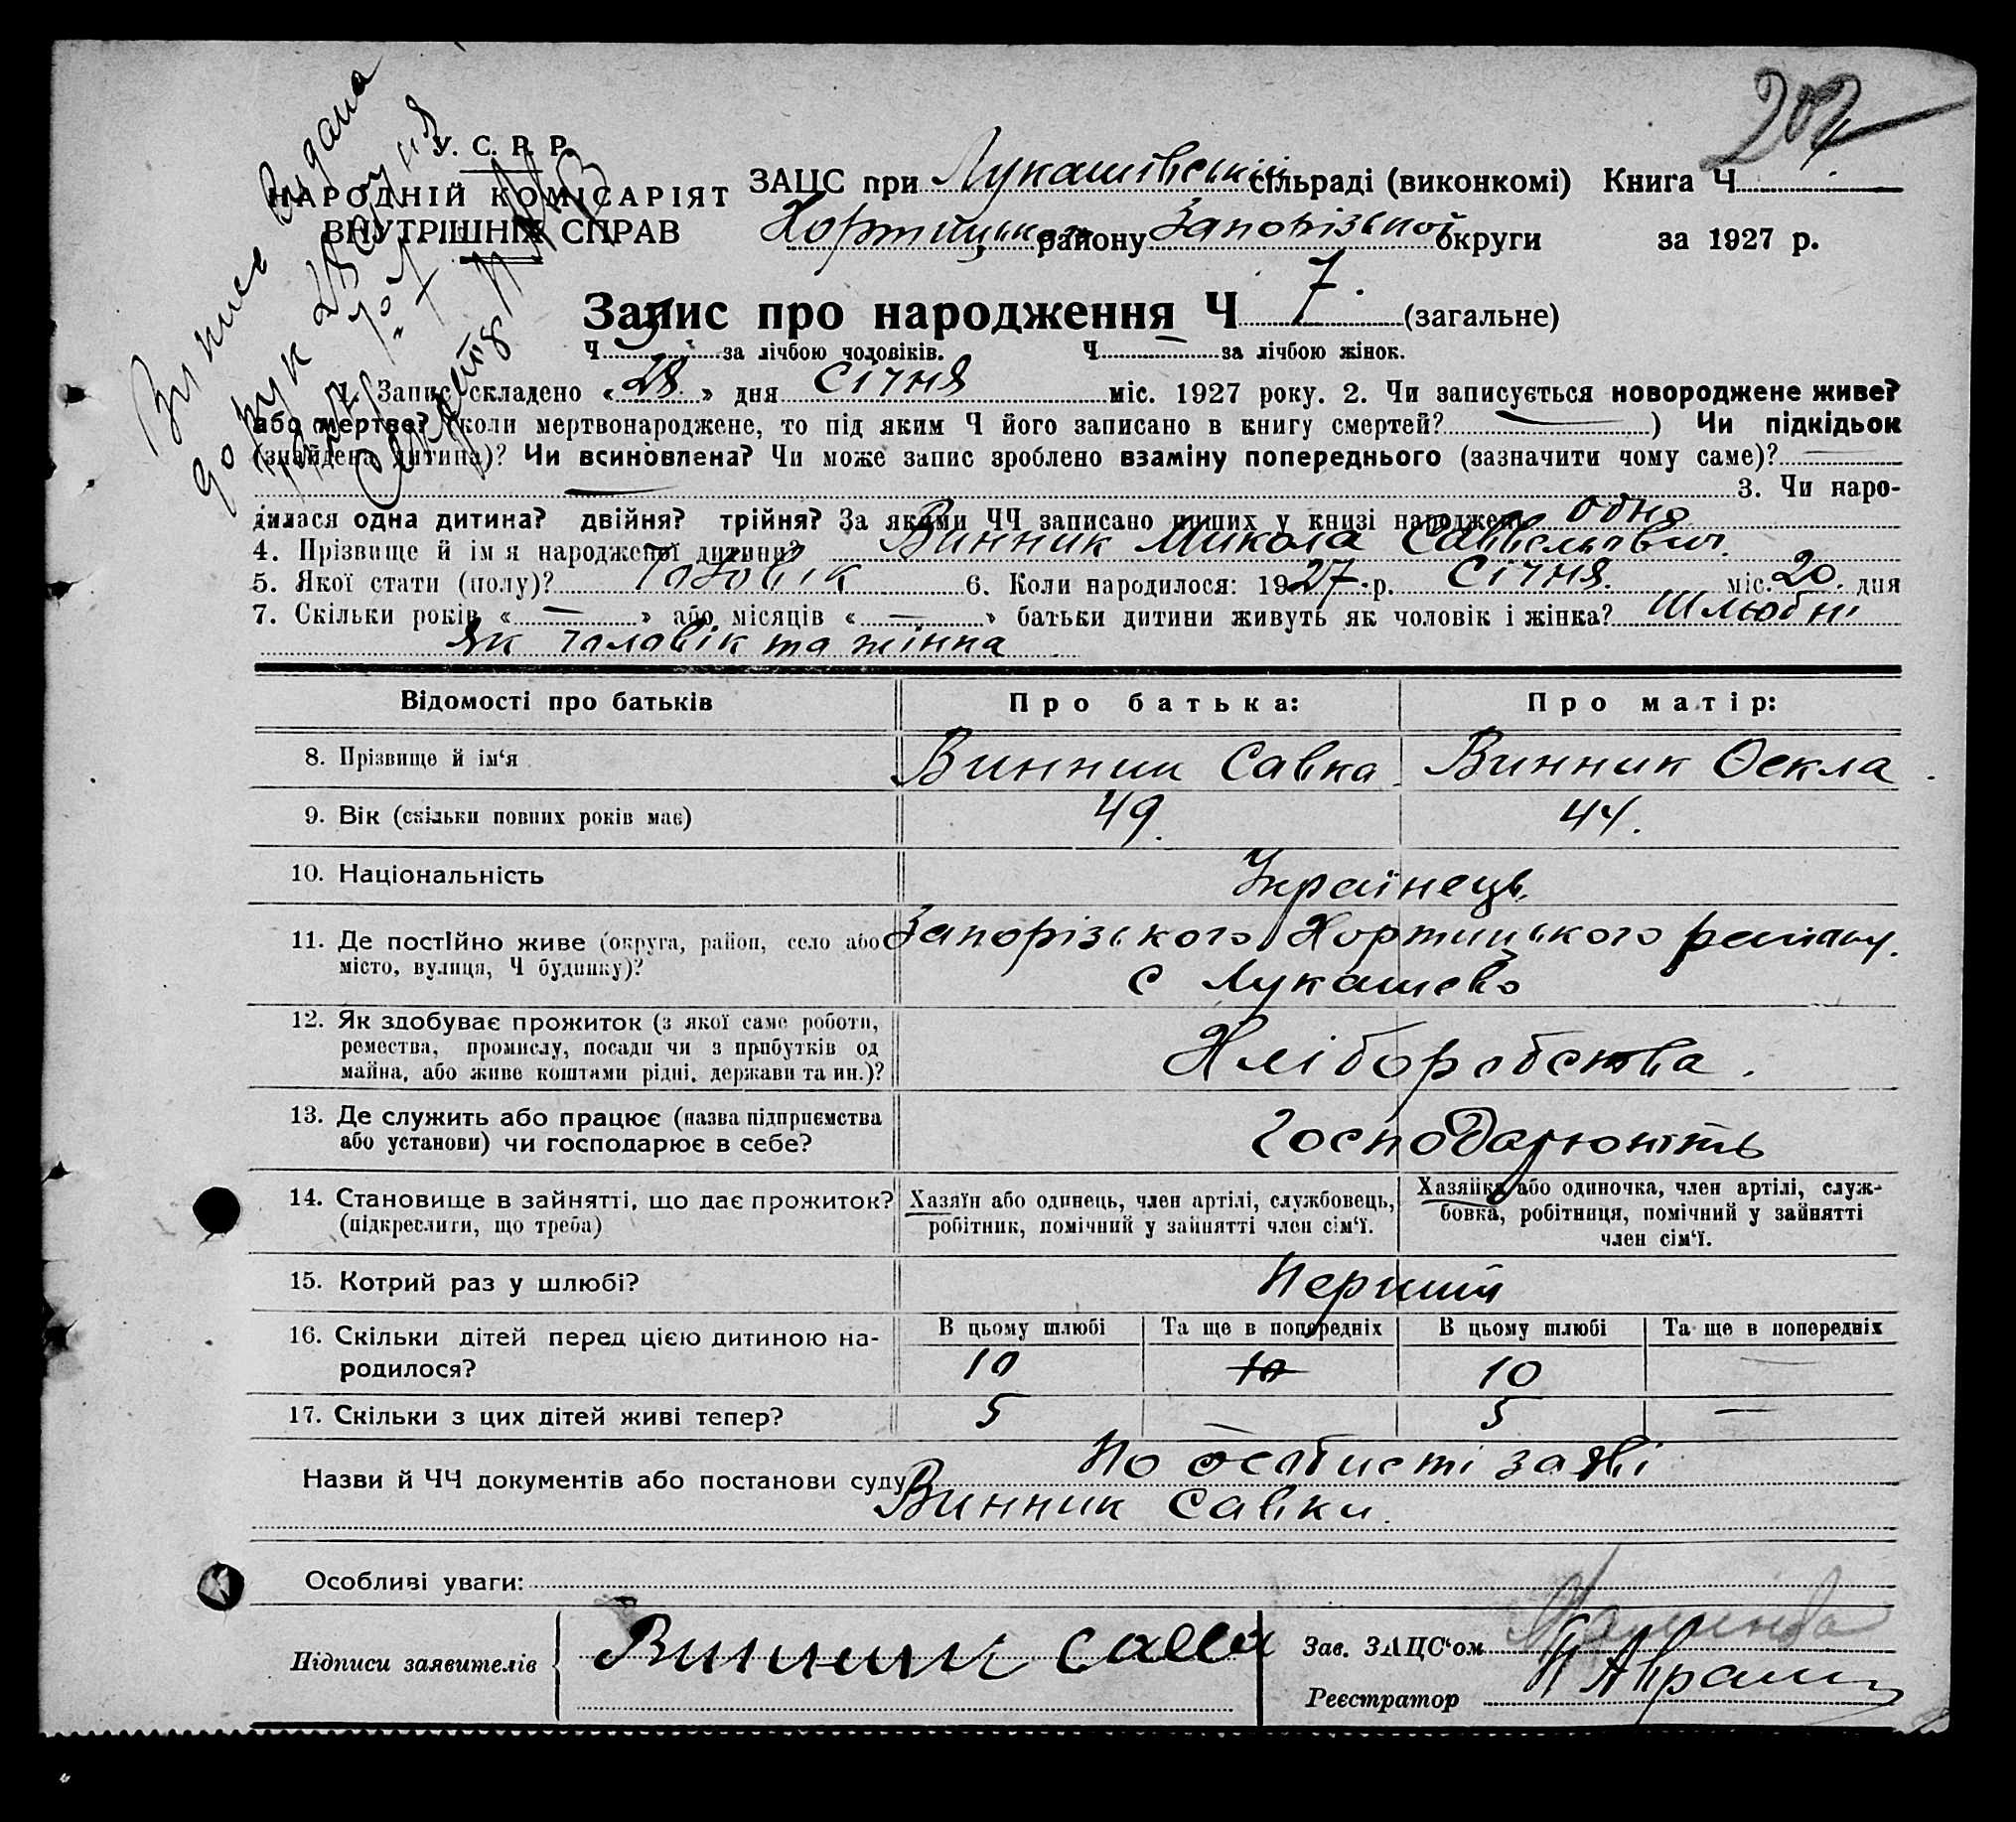 202
Випис видана
до рук 28 січня
У. С. Р. Р.
НАРОДНІЙ КОМІСАРІЯТ
ВНУТРІШНІХ СПРАВ
ЗАЦС при Лукашівській сільраді (виконкомі) Книга Ч
Хортицького району Запорізької округи за 1927 р.
Запис про народження Ч 7. (загальне)
Ч за лічбою чоловіків. Ч — за лічбою жінок.
1. Запис складено «28» дня Січня міс. 1927 року. 2. Чи записується новороджене живе?
або мертве? (коли мертвонароджене, то під яким Ч його записано в книгу смертей? — ) Чи підкідьок
(знайдена дитина)? Чи всиновлена? Чи може запис зроблено взаміну попереднього (зазначити чому саме)? —
— 3. Чи наро-
дилася одна дитина? двійня? трійня? За якими ЧЧ записано инших у книзі народжень одно
4. Прізвище й ім я народженої дитини? Винник Микола Савельевич.
5. Якої стати (полу)? Чоловік 6. Коли народилося: 1927 р. Січня. міс. 20. дня
7. Скільки років « — » або місяців « — » батьки дитини живуть як чоловік і жінка? Шлюбні
як чоловік та жінка
Відомості про батьків Про батька: Про матір:
8. Прізвище й ім‘я Винник Савка Винник Оекла
9. Вік (скільки повних років має) 49. 44.
10. Національність Українець
11. Де постійно живе (округа, район, село або Запорізького Хортицького району.
місто, вулиця, Ч будинку)? с Лукашево
12. Як здобуває прожиток (з якої саме роботи,
ремества, промислу, посади чи з прибутків од
майна, або живе коштами рідні, держави та ин.)? Хліборобства.
13. Де служить або працює (назва підприємства
або установи) чи господарює в себе? господарюють
14. Становище в зайнятті, що дає прожиток? Хазяїн або одинець, член артілі, службовець, Хазяйка або одиночка, член артілі, служ-
(підкреслити, що треба) робітник, помічний у зайнятті член сім‘ї. бовка, робітниця, помічний у зайнятті
член сім‘ї.
15. Котрий раз у шлюбі? Перший
16. Скільки дітей перед цією дитиною на- В цьому шлюбі Та ще в попередніх В цьому шлюбі Та ще в попередніх
родилося? 10 10 10 —
17. Скільки з цих дітей живі тепер? 5 — 5 —
Назви й ЧЧ документів або постанови суду По особисті заяві
Винник Савки.
Особливі уваги:
Підписи заявителів Винник Савка Зав. ЗАЦС‘ом
Реєстратор